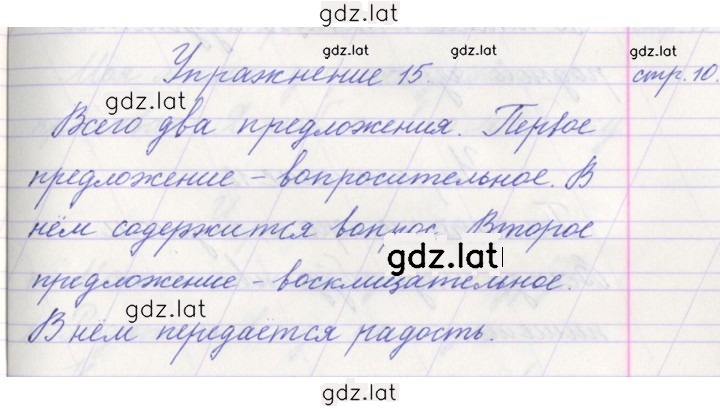 gdz.lat
gdz.lat gdz.lat gdz.lat
Упражнение 15. стр. 10.
gdz.lat
Всего два предложения. Первое
предложение – вопросительное. В
нём содержится вопрос. Второе
gdz.lat
предложение – восклицательное.
gdz.lat
В нём передается радость.
gdz.lat